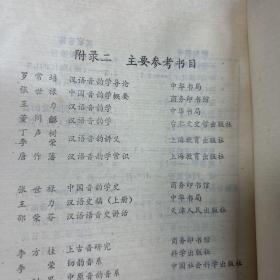 附录二 主要参考书目
罗常培 汉语音韵学导论 中华书局
张世禄 中国音韵学概要 商务印书馆
王力 汉语音韵学 中华书局
董同龢 汉语音韵学
丁声树
李荣 汉语音韵讲义 上海教育出版社
唐作藩 汉语音韵学常识 上海教育出版社
张世禄 中国音韵学史 商务印书馆
王力 汉语史稿(上册) 中华书局
邵荣芬 汉语语音史讲话 天津人民出版社
李方桂 上古音研究 商务印书馆
李荣 切韵音系 科学出版社
中原音韵音系 中国社会科学出版社